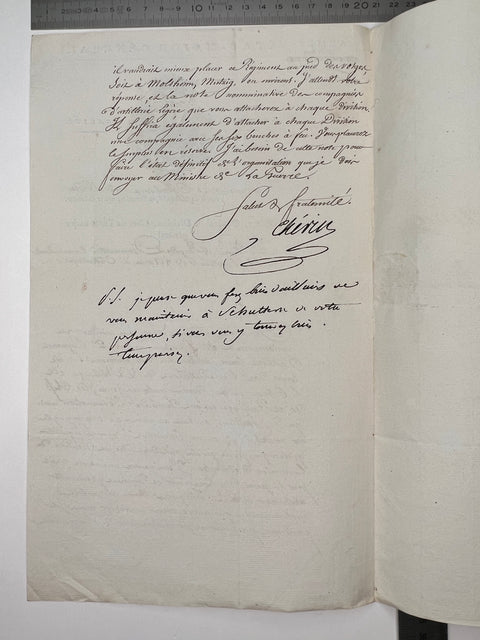 il vaudrait mieux placer ce Régiment au pied des vosges
soit à Molsheim, Mutzig, ou environs. J'attends votre
réponse, et la note nominative des compagnies
d'artillerie légère que vous attacherez à chaque division.
Il suffira également d'attacher à chaque Division
une compagnie avec ses six bouches à feu. Vous placerez
le surplus en réserve. J'ai besoin de cette note pour
faire l'état définitif de l'organisation que je dois
envoyer au Ministre de La Guerre
Salut & fraternité.
Chérin
P.S. je pense que vous ferez bien d'ailleurs de
vous maintenir à de votre
personne, si vous vous y trouvez